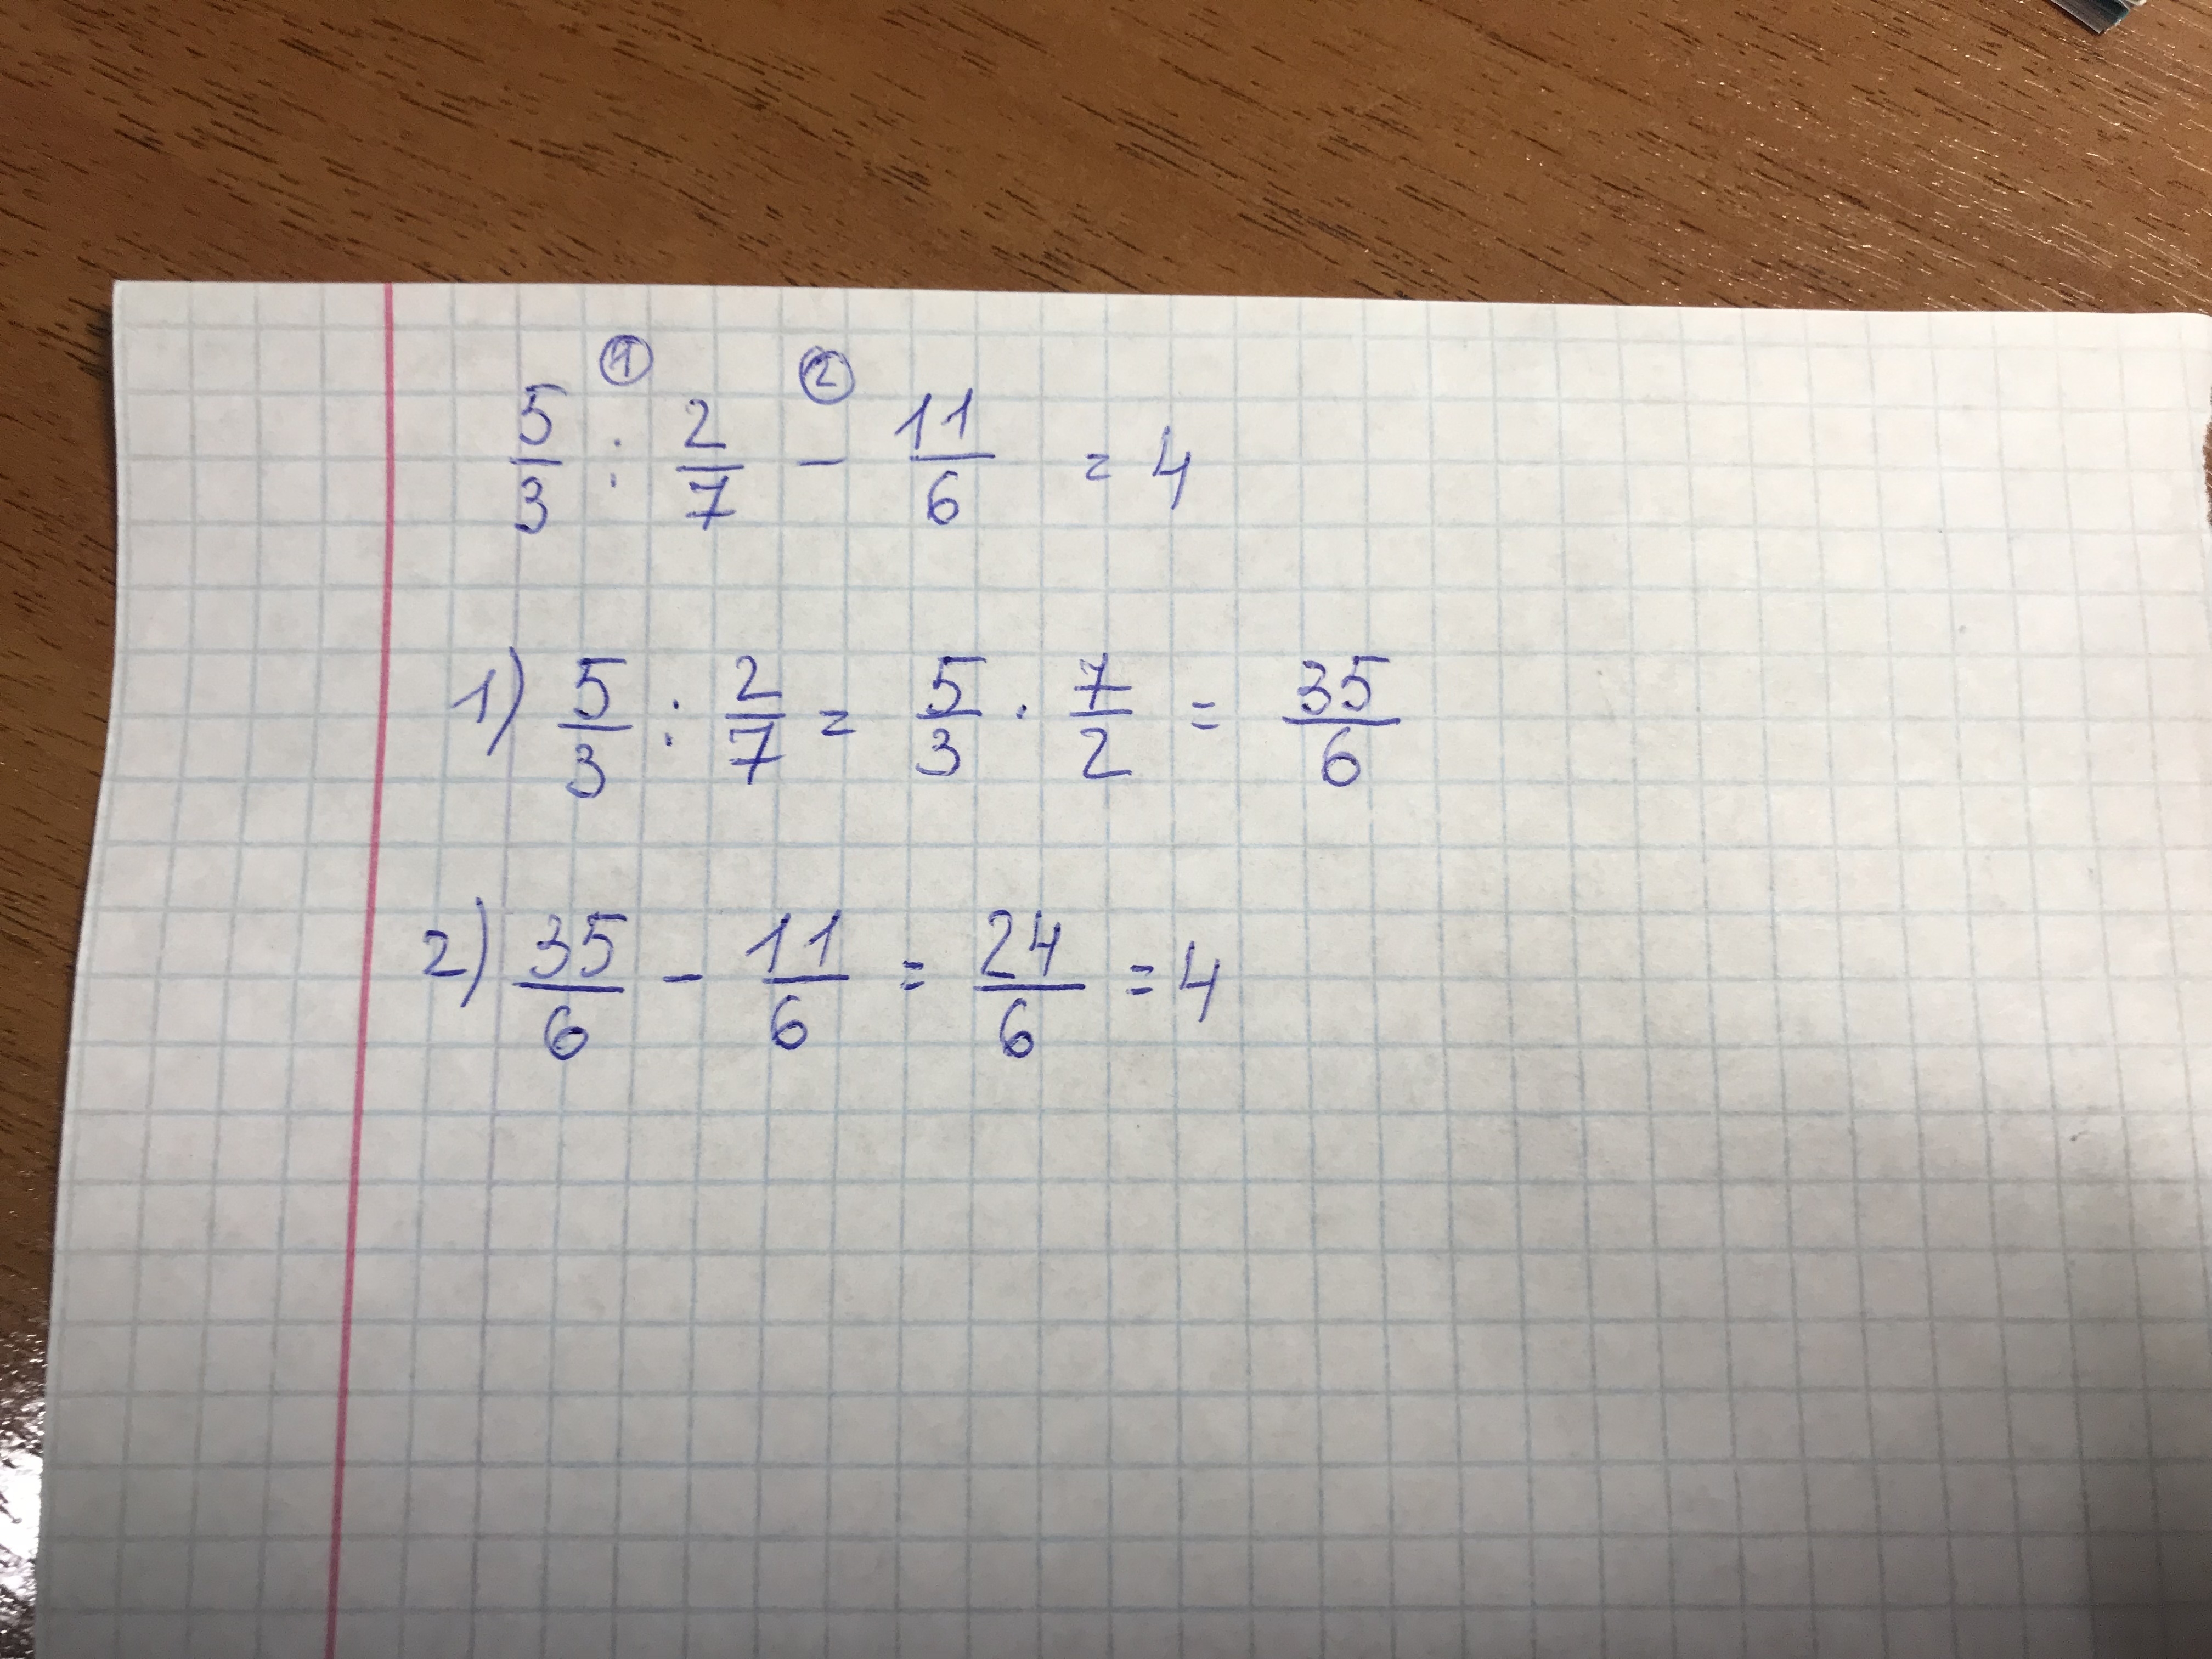 ① ②
5/3 : 2/7 - 11/6 = 4
1) 5/3 : 2/7 = 5/3 · 7/2 = 35/6
2) 35/6 - 11/6 = 24/6 = 4